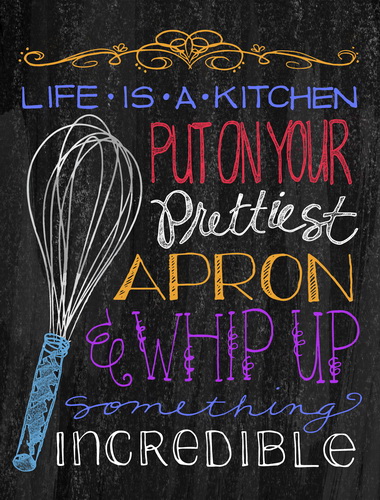 LIFE • IS • A • KITCHEN
PUT ON YOUR
Prettiest
APRON
& WHIP UP
something
INCREDIBLE